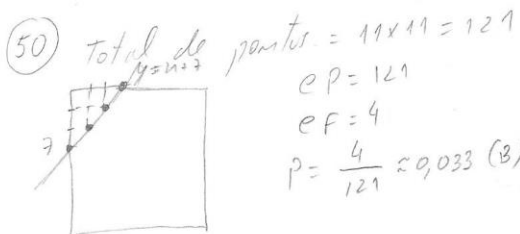 50 Total de pontos = 11x11 = 121
y=x+7
eP = 121
eF = 4
7
P = 4/121 ≈ 0,033 (B)